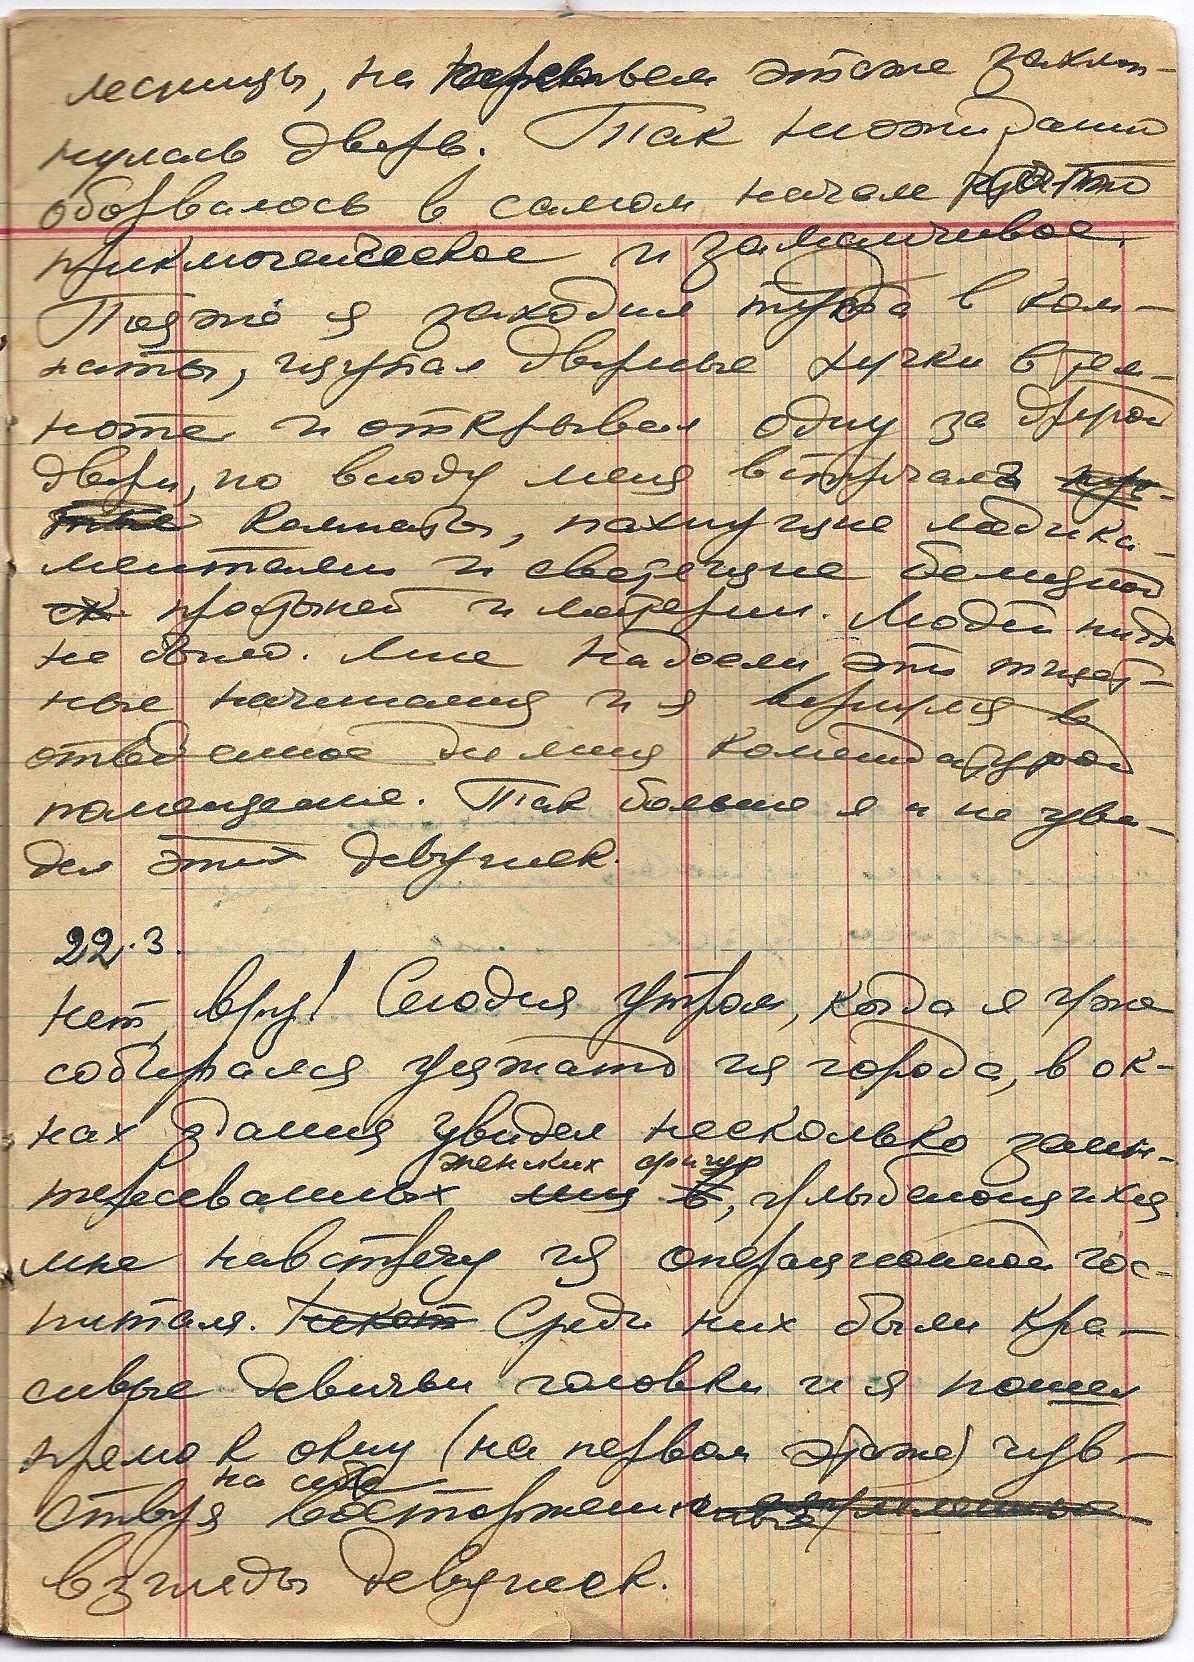 лесницы, на первом этаже захлоп-
нулась дверь. Так неожиданно
оборвалось в самом начале что-то
приключенческое и заманчивое.
Позже я заходил туда в ком-
наты, щупал дверные ручки в тем-
ноте и открывал одну за другой
двери, но всюду меня встречали
комнаты, пахнущие медика-
ментами и сверкающие белизной
простыней и материи. Людей нигде
не было. Мне надоели эти тщет-
ные начинания и я вернулся в
отведенное для меня комендатурой
помещение. Так больше я и не уви-
дел этих девушек.
22.3.
Нет, вру! Сегодня утром, когда я уже
собирался уезжать из города, в ок-
нах здания увидел несколько заин-
тересованных женских фигур, улыбающихся
мне навстречу из операционной гос-
питаля. Среди них были кра-
сивые девичьи головки и я пошел
прямо к окну (на первом этаже) чув-
ствуя на себе восторженные
взгляды девушек.